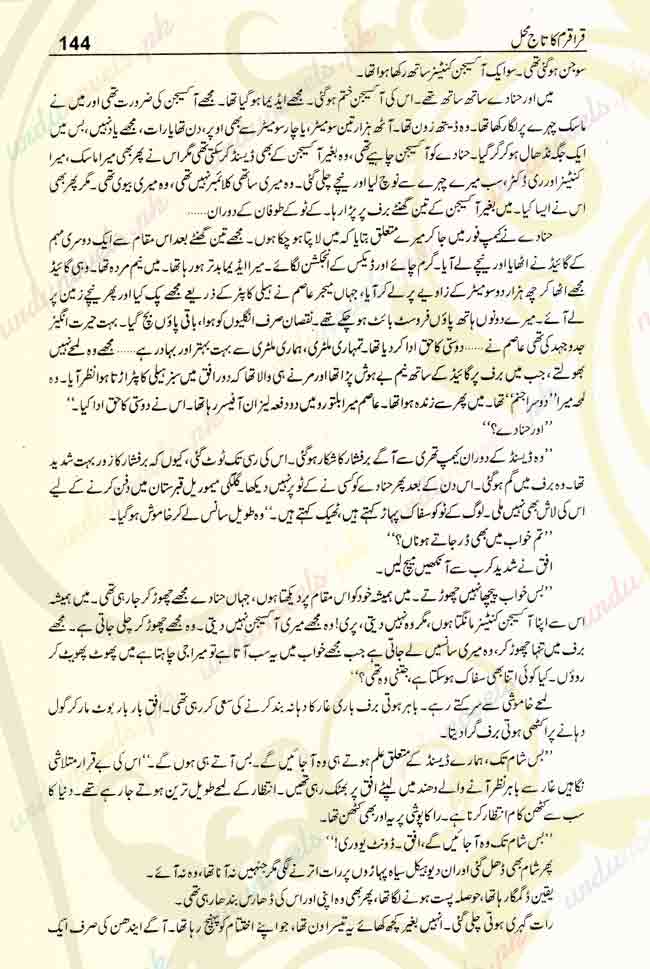 قراقرم کا تاج محل 144
سوجن ہو گئی تھی۔ سو ایک آکسیجن کنٹینر ساتھ رکھا ہوا تھا۔
میں اور حنادے ساتھ ساتھ تھے۔ اس کی آکسیجن ختم ہو گئی۔ مجھے ایڈیما ہو گیا تھا۔ مجھے آکسیجن کی ضرورت تھی اور میں نے
ماسک چہرے پر لگا رکھا تھا۔ وہ ڈیتھ زون تھا۔ آٹھ ہزار تین سو میٹر، یا چار سو میٹر سے بھی اوپر، دن تھا یا رات، مجھے یاد نہیں، بس میں
ایک جگہ نڈھال ہو کر گر گیا۔ حنادے کو آکسیجن چاہیے تھی، وہ بغیر آکسیجن کے بھی ڈیسنڈ کر سکتی تھی مگر اس نے پھر بھی میرا ماسک، میرا
کنٹینر اور ری ڈکٹر، سب میرے چہرے سے نوچ لیا اور نیچے چلی گئی۔ وہ میری ساتھی کلائمبر نہیں تھی، وہ میری بیوی تھی۔ مگر پھر بھی
اس نے ایسا کیا۔ میں بغیر آکسیجن کے تین گھنٹے برف پر پڑا رہا۔ کے ٹو کے طوفان کے دوران......
حنادے نے کیمپ فور میں جا کر میرے متعلق بتایا کہ میں لاپتا ہو چکا ہوں۔ مجھے تین گھنٹے بعد اس مقام سے ایک دوسری مہم
کے گائیڈ نے اٹھایا اور نیچے لے آیا۔ گرم چائے اور ڈیکس کے انجکشن لگائے۔ میرا ایڈیما بدتر ہو رہا تھا۔ میں نیم مردہ تھا۔ وہی گائیڈ
مجھے اٹھا کر چھ ہزار دو سو میٹر کے زاویے پر لے کر آیا، جہاں میجر عاصم نے ہیلی کاپٹر کے ذریعے مجھے پک کیا اور پھر نیچے زمین پر
لے آئے۔ میرے دونوں ہاتھ پاؤں فروسٹ بائٹ ہو چکے تھے۔ نقصان صرف انگلیوں کو ہوا، باقی پاؤں بچ گیا۔ بہت حیرت انگیز
جدوجہد کی تھی عاصم نے...... دوستی کا حق ادا کر دیا تھا۔ تمہاری ملٹری، ہماری ملٹری سے بہت بہتر اور بہادر ہے...... مجھے وہ لمحے نہیں
بھولتے، جب میں برف پر گائیڈ کے ساتھ نیم بے ہوش پڑا تھا اور مرنے ہی والا تھا کہ دور افق میں سبز ہیلی کاپٹر اڑتا ہوا نظر آیا۔ وہ
لمحہ میرا ”دوسرا جنم“ تھا۔ میں پھر سے زندہ ہوا تھا۔ عاصم میرا بلتورو میں دو دفعہ لیزان آفیسر رہا تھا۔ اس نے دوستی کا حق ادا کیا۔“
”اور حنادے؟“
”وہ ڈیسنڈ کے دوران کیمپ تھری سے آگے برفشار کا شکار ہو گئی۔ اس کی رسی تک ٹوٹ گئی، کیوں کہ برفشار کا زور بہت شدید
تھا۔ وہ برف میں گم ہو گئی۔ اس دن کے بعد پھر حنادے کو کسی نے کے ٹو پر نہیں دیکھا۔ گلکی میموریل قبرستان میں دفن کرنے کے لیے
اس کی لاش بھی نہیں ملی۔ لوگ کے ٹو کو سفاک پہاڑ کہتے ہیں، ٹھیک کہتے ہیں۔“ وہ طویل سانس لے کر خاموش ہو گیا۔
”تم خواب میں بھی ڈر جاتے ہو ناں؟“
افق نے شدید کرب سے آنکھیں میچ لیں۔
”بس خواب پیچھا نہیں چھوڑتے۔ میں ہمیشہ خود کو اس مقام پر دیکھتا ہوں، جہاں حنادے مجھے چھوڑ کر جا رہی تھی۔ میں ہمیشہ
اس سے اپنا آکسیجن کنٹینر مانگتا ہوں، مگر وہ نہیں دیتی، پری! وہ مجھے میری آکسیجن نہیں دیتی۔ وہ مجھے چھوڑ کر چلی جاتی ہے۔ مجھے
برف میں تنہا چھوڑ کر، وہ میری سانسیں لے جاتی ہے جب مجھے خواب میں یہ سب آتا ہے تو میرا جی چاہتا ہے میں پھوٹ پھوٹ کر
روؤں۔ کیا کوئی اتنا بھی سفاک ہو سکتا ہے، جتنی وہ تھی؟“
لمحے خاموشی سے سرکتے رہے۔ باہر ہوتی برف باری غار کا دہانہ بند کرنے کی سعی کر رہی تھی۔ افق بار بار بوٹ مار کر گول
دہانے پر اکٹھی ہوتی برف گرا دیتا۔
”بس شام تک، ہمارے ڈیسنڈ کے متعلق علم ہوتے ہی وہ آ جائیں گے۔ بس آتے ہی ہوں گے۔“ اس کی بے قرار متلاشی
نگاہیں غار سے باہر نظر آنے والے دھند میں لپٹے افق پر بھٹک رہی تھیں۔ انتظار کے لمحے طویل ترین ہوتے جا رہے تھے۔ دنیا کا
سب سے کٹھن کام انتظار کرنا ہے۔ راکاپوشی پر یہ اور بھی کٹھن تھا۔
”بس شام تک وہ آ جائیں گے، افق۔ ڈونٹ یو وری!“
پھر شام بھی ڈھل گئی اور ان دیوہیکل سیاہ پہاڑوں پر رات اترنے لگی مگر جنہیں نہ آنا تھا، وہ نہ آئے۔
یقین ڈگمگا رہا تھا، حوصلہ پست ہونے لگا تھا، پھر بھی وہ اپنی اور اس کی ڈھارس بندھا رہی تھی۔
رات گہری ہوتی چلی گئی۔ انہیں بغیر کچھ کھائے یہ تیسرا دن تھا، جو اپنے اختتام کو پہنچ رہا تھا۔ آگے ایندھن کی صرف ایک